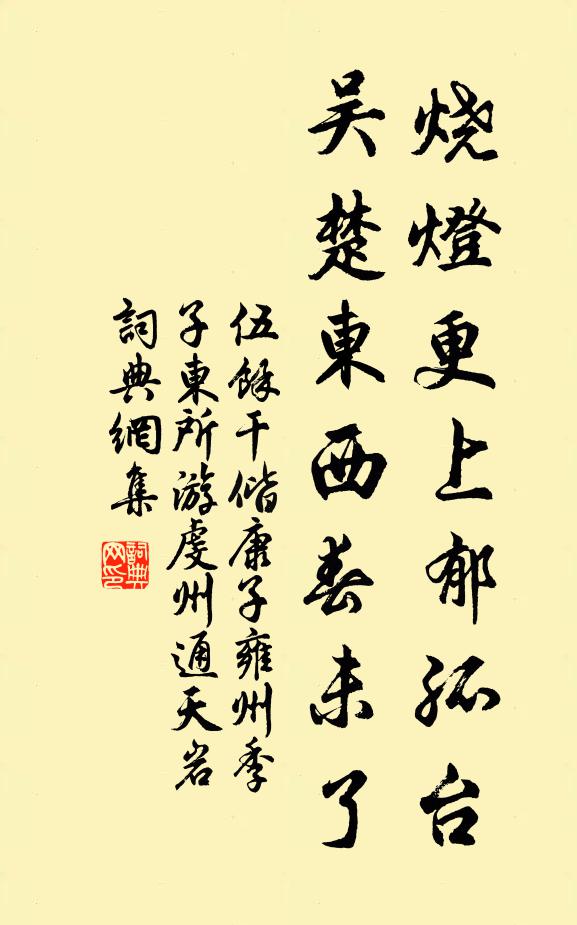 烧燈更上郁孤台
吴楚東西春未了
伍餘干偕康子雍州季
子東所游虔州通天岩
詞典網集
詞典网印